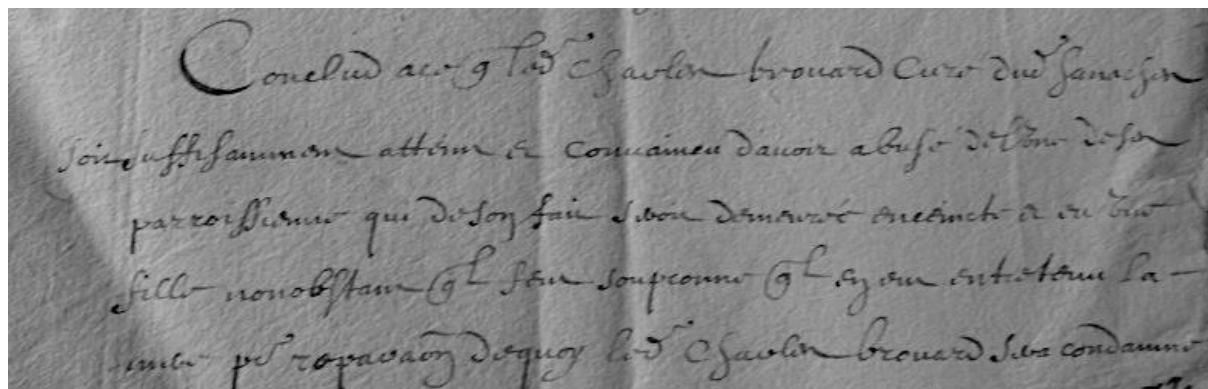 Conclud ace ql led Charles brouard Cure dud
soit suffisammen attein et convaincu d'avoir abusé de l'une de ses
parroissienne qui de son fait seroit demeurée enceincte et eu une
fille nonobstant ql feut soupconne ql en eut entretenu la
mere pr reparaon dequoy led Charles brouard sera condamne